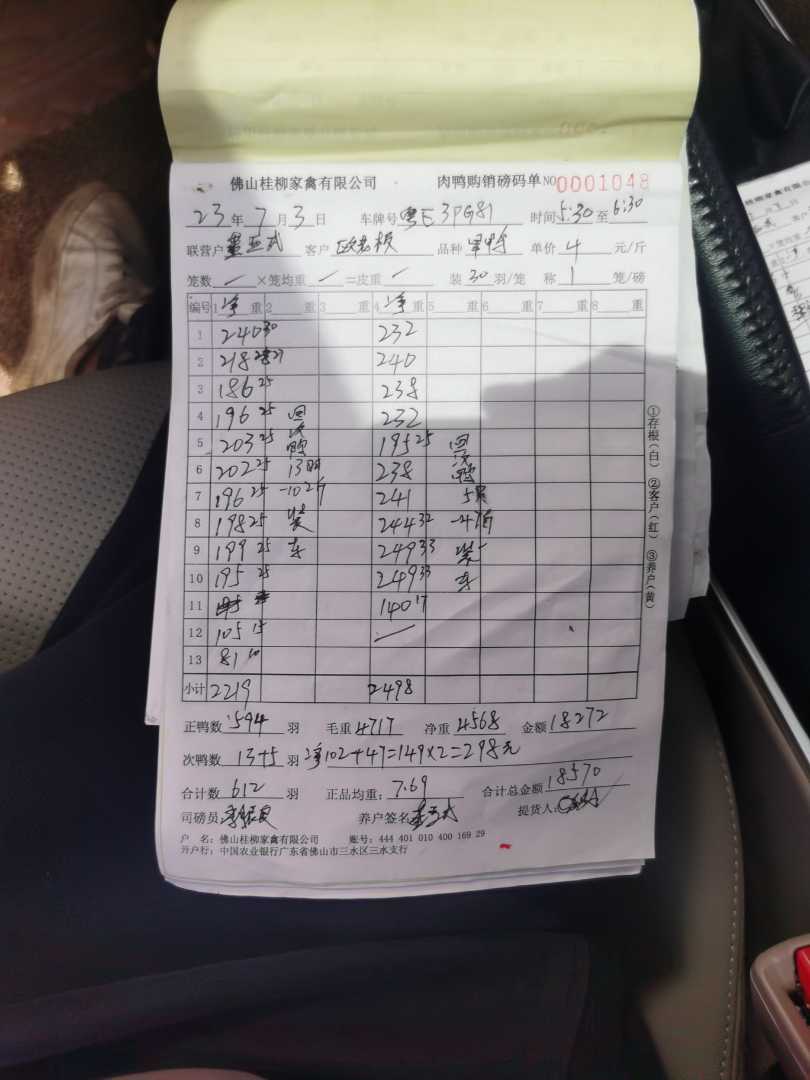 佛山桂柳家禽有限公司 肉鸭购销磅码单 NO 0001048
23 年 7 月 3 日 车牌号 粤E 3PG81 时间 5:30 至 6:30
联营户 客户 欧老板 品种 单价 4 元/斤
笼数 / ×笼均重 / =皮重 / 装 30 羽/笼 称 1 笼/磅
编号 1 净 重 2 重 3 重 4 净 重 5 重 6 重 7 重 8 重
1 240 30 232
2 218 27 240
3 186 25 238
4 196 25 回 232
5 203 25 195 25 回
6 202 25 13 238
7 196 25 -102斤 241 5
8 198 25 装 244 32 -47斤
9 199 25 车 249 33 装
10 195 25 249 33 车
11 140 17
12 105 15 /
13 81 10
小计 2219 2498
正鸭数 594 羽 毛重 4717 净重 4568 金额 18272
次鸭数 13+5 羽 净102+47=149×2=298元
合计数 612 羽 正品均重: 7.69 合计总金额 18570
司磅员: 养户签名 提货人:
户 名: 佛山桂柳家禽有限公司 账号: 444 401 010 400 169 29
开户行: 中国农业银行广东省佛山市三水区三水支行
①存根(白) ②客户(红) ③养户(黄)